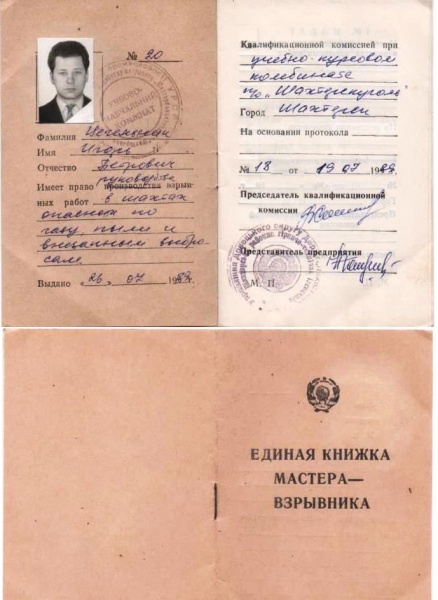 № 20
Фамилия
Имя Игорь
Отчество Петрович
руководства
Имеет право производства взрыв-
ных работ в шахтах
опасных по
газу, пыли и
внезапным выбро-
сам.
Выдано 26 07 198
УЧЕБНО-
КУРСОВОЙ
КОМБИНАТ
Квалификационной комиссией при
учебно-курсовой
комбината
п/о „Шахтерскуголь
Город Шахтерск
На основании протокола
№ 18 от 19 07 198
Председатель квалификационной
комиссии
Представитель предприятия
М П
ЕДИНАЯ КНИЖКА
МАСТЕРА—
ВЗРЫВНИКА